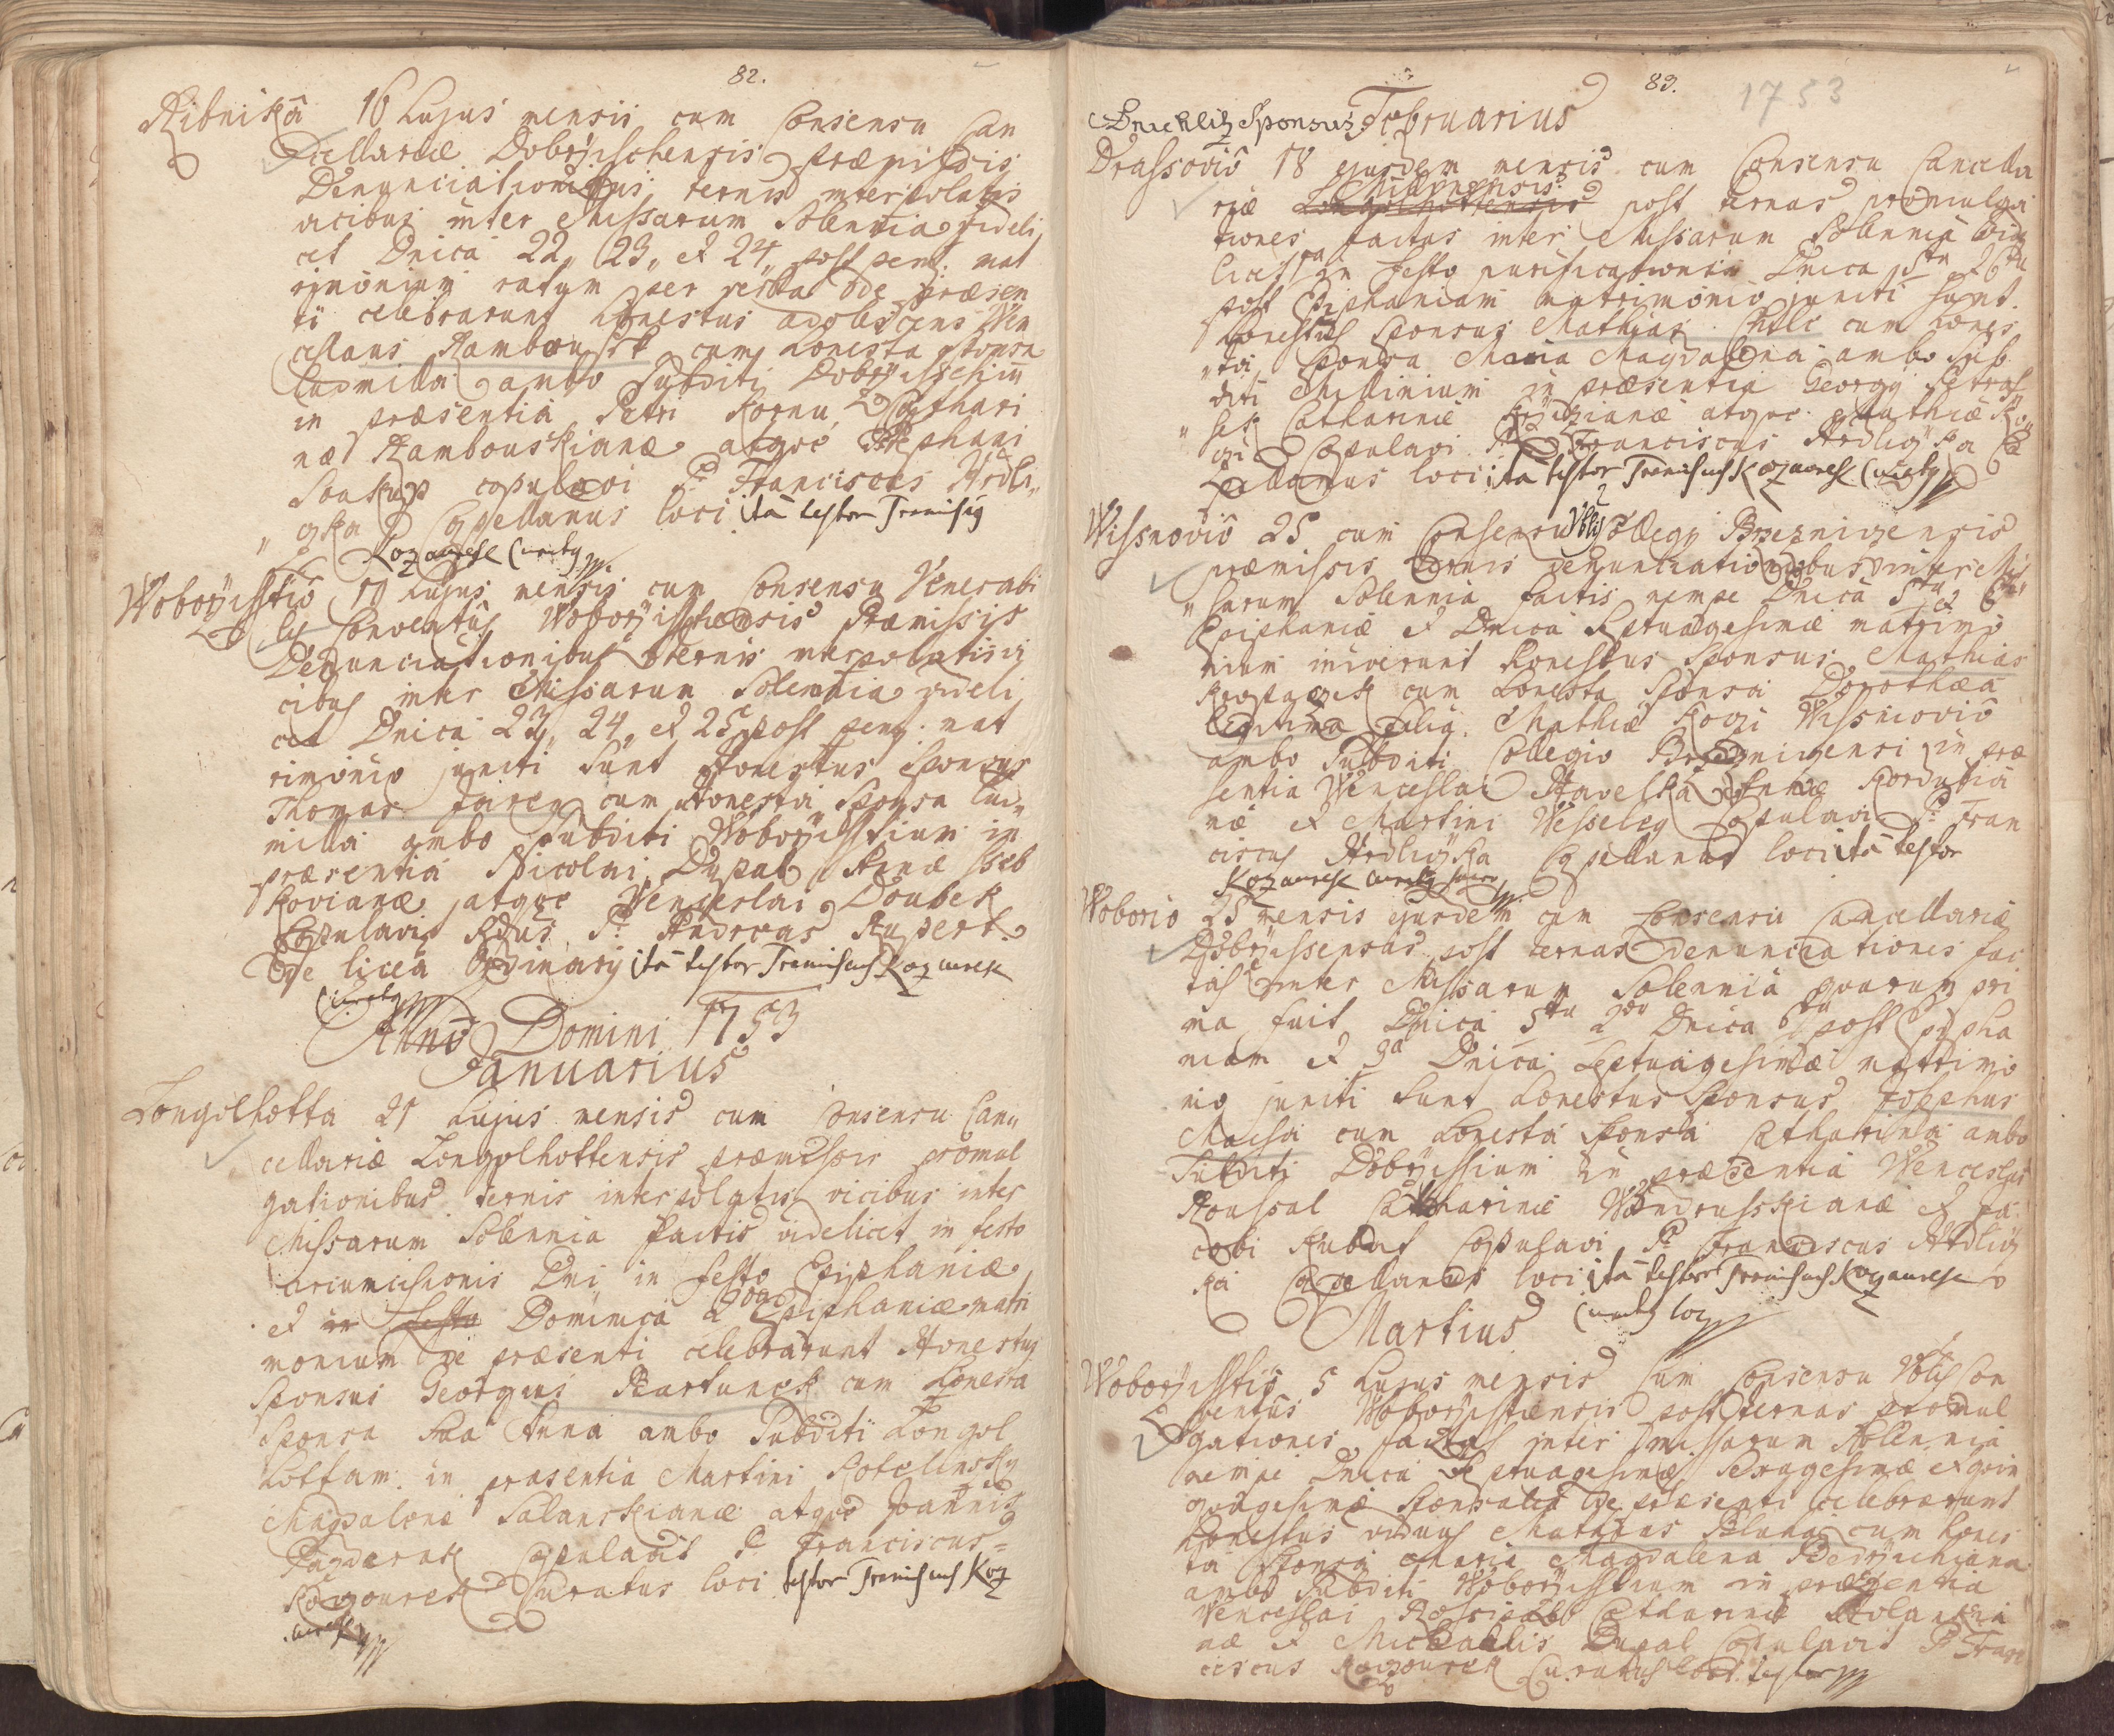 82.
Ribnikâ 16 hujus mensis cum Consensu Can
cellariæ Dobrzischensis præmissis
Denunciationibus ternis interpolatis
vicibus inter Missarum Solennia videli
cet Dnica 22, 23, et 24, post pent. mat
rimonium ratum per verba de præsen
ti celebrarunt honestus adolescens Wen
ceslaus Rambousek cum honesta sponsa
Ludmilla ambo subditi Dobrzissenses
in præsentia Petri Kornu, Cathari
næ Rambouskianæ atque Stephani
Soukup copulavi P. Franciscus Hrdli,,
,, czka Capellanus loci ita testor Franciscus
Kozaurek Curatus
Woborzisstiô 19 hujus mensis cum Consensu Venerabi
lis Conventûs Woborzisstensis Præmissis
Denunciationibus ternis interpolatis vi
cibus inter Missarum Solennia videli
cet Dnica 23, 24, et 25 post pent. mat
rimonio juncti sunt Honestus Sponsus
Thomas cum Honesta Sponsa Lud,,
milla ambo subditi Woborzisstium in
præsentia Nicolai Dupal Annæ
kovianæ, atque Wenceslai Doubek
Copulavit Rdus P. Andreas Rupert
de licea Ordinarij ita testor Franciscus Kozaurek
Curatus
Anno Domini 1753
Januarius
Longolhotta 21 hujus mensis cum Consensu Can,,
cellariæ Longolhottensis præmissis promul
gationibus ternis interpolatis vicibus inter
Missarum Solennia factis videlicet in festo
circumcisionis Dni, in festo Epiphaniæ
et in festo Dominica 2da Epiphaniæ matri
monium de præsenti celebrarunt Honestus
Sponsus Georgius Bartunek cum honesta
Sponsa sua Anna ambo Subditi Longol
hottam: in præsentia Martini Kotelinsky
Magdalenæ Salanskianæ atque Joannis
Copulavit P. Franciscus
Kozourek Curatus loci testor Franciscus Koz
aurek
83.
1753
Sponsus: Februarius
Drassoviô 18 ejusdem mensis cum Consensu Cancella
riæ Longolhottensis Millinensis post ternas promulga
tiones factas inter Missarum Solennia vide
licet in festo purificationis Dnica 5ta 6ta
post Epiphaniam matrimonio juncti sunt.
honestus Sponsus Mathias cum hones
,, ta Sponsa Maria Magdalena ambo Sub
diti Millinium in præsentia Georgij Petras
,, sek Catharinæ atque Mathiæ Ko,,
Copulavi P. Franciscus Hrdliczka Ca
pellanus loci ita testor Franciscus Kozaurek Curatus
Wissnoviô 25 cum Consensu Vblis Collegij Brzeznizensis
præmissis ternis denunciationibus inter Mis
,, sarum Solennia factis nempe Dnica 5ta et 6ta
Epiphaniæ et Dnica Septuagesimæ matrimo
nium inierunt honestus Sponsus Mathias
cum honesta Sponsa Dorothæa
legitima filia Mathiæ Wissnoviô
ambo Subditi Collegio Brzeznicensi in præ
sentia Wenceslai Hawelka Annæ
næ et Martini Wesseley Copulavi P. Fran
ciscus Hrdliczka Capellanus loci ita testor
Kozaurek Curatus
Woborio 25 mensis ejusdem cum Consensu Cancellariæ
Dobrzissensis post ternas denunciationes fac
tas inter Missarum Solennia quarum pri
ma fuit Dnica 5ta 2da Dnica 6ta post Epipha
niam et 3a Dnica Septuagesimæ matrimo
nio juncti sunt honestus Sponsus Josephus
Macha cum honesta Sponsa Catharina ambo
Subditi Dobrzissium in præsentia Wenceslai
Roussal Catharinæ Wondrusskianæ et Ja
cobi Copulavi P. Franciscus Hrdlicz
ka Capellanus loci ita testor Franciscus Kozaurek
Curatus loci
Martius
Woborzisstiô 5 hujus mensis cum Consensu Vblis Con
ventûs Woborzistensis post ternas promul
gationes factas inter missarum Solennia
nempe Dnica Septuagesimæ Sexagesimæ et quin
quagesimæ sponsalia de præsenti celebrarunt
honestus viduus Mathias cum hones
ta Sponsa Maria Magdalena
ambo Subditi Woborzisstium in præsentia
Wenceslai Catharinæ
næ et Michaelis Dupal Copulavit P. Fran
ciscus Kozourek Curatus loci testor